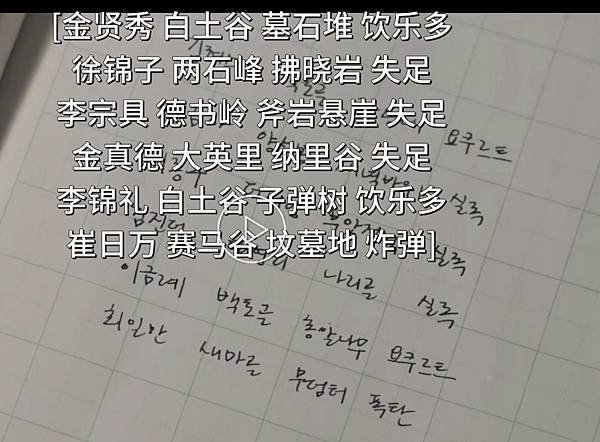 [金贤秀 白土谷 墓石堆 饮乐多
徐锦子 两石峰 拂晓岩 失足
李宗具 德书岭 斧岩悬崖 失足
金真德 大英里 纳里谷 失足
李锦礼 白土谷 子弹树 饮乐多
崔日万 赛马谷 坟墓地 炸弹]
요쿠르트
실족
실족
김진덕 나리골 실족
이금례 백토골 총알나무 요쿠르트
최일만 새마골 무덤터 폭탄